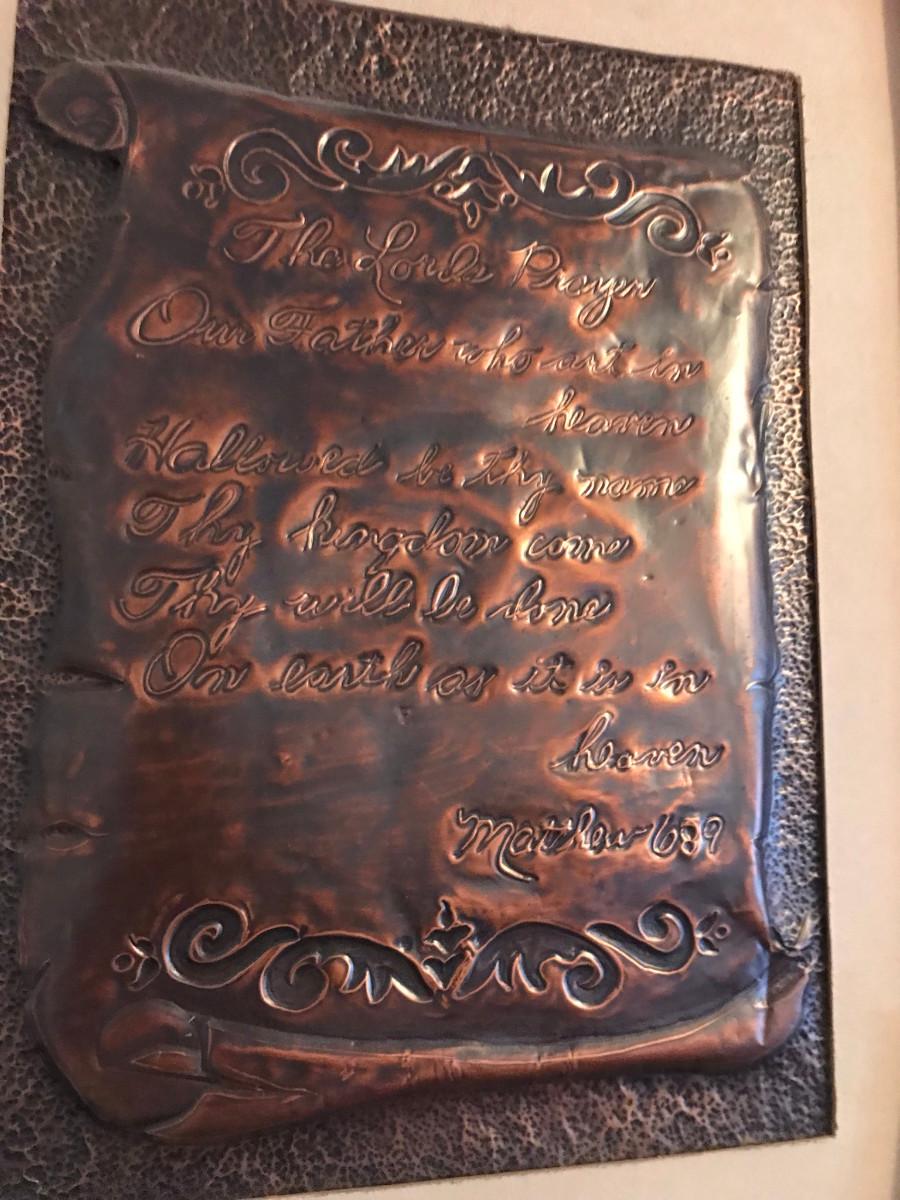 The Lords Prayer
Our Father who art in
heaven
Hallowed be thy name
Thy kingdom come
Thy will be done
On earth as it is in
heaven
Matthew 6:9